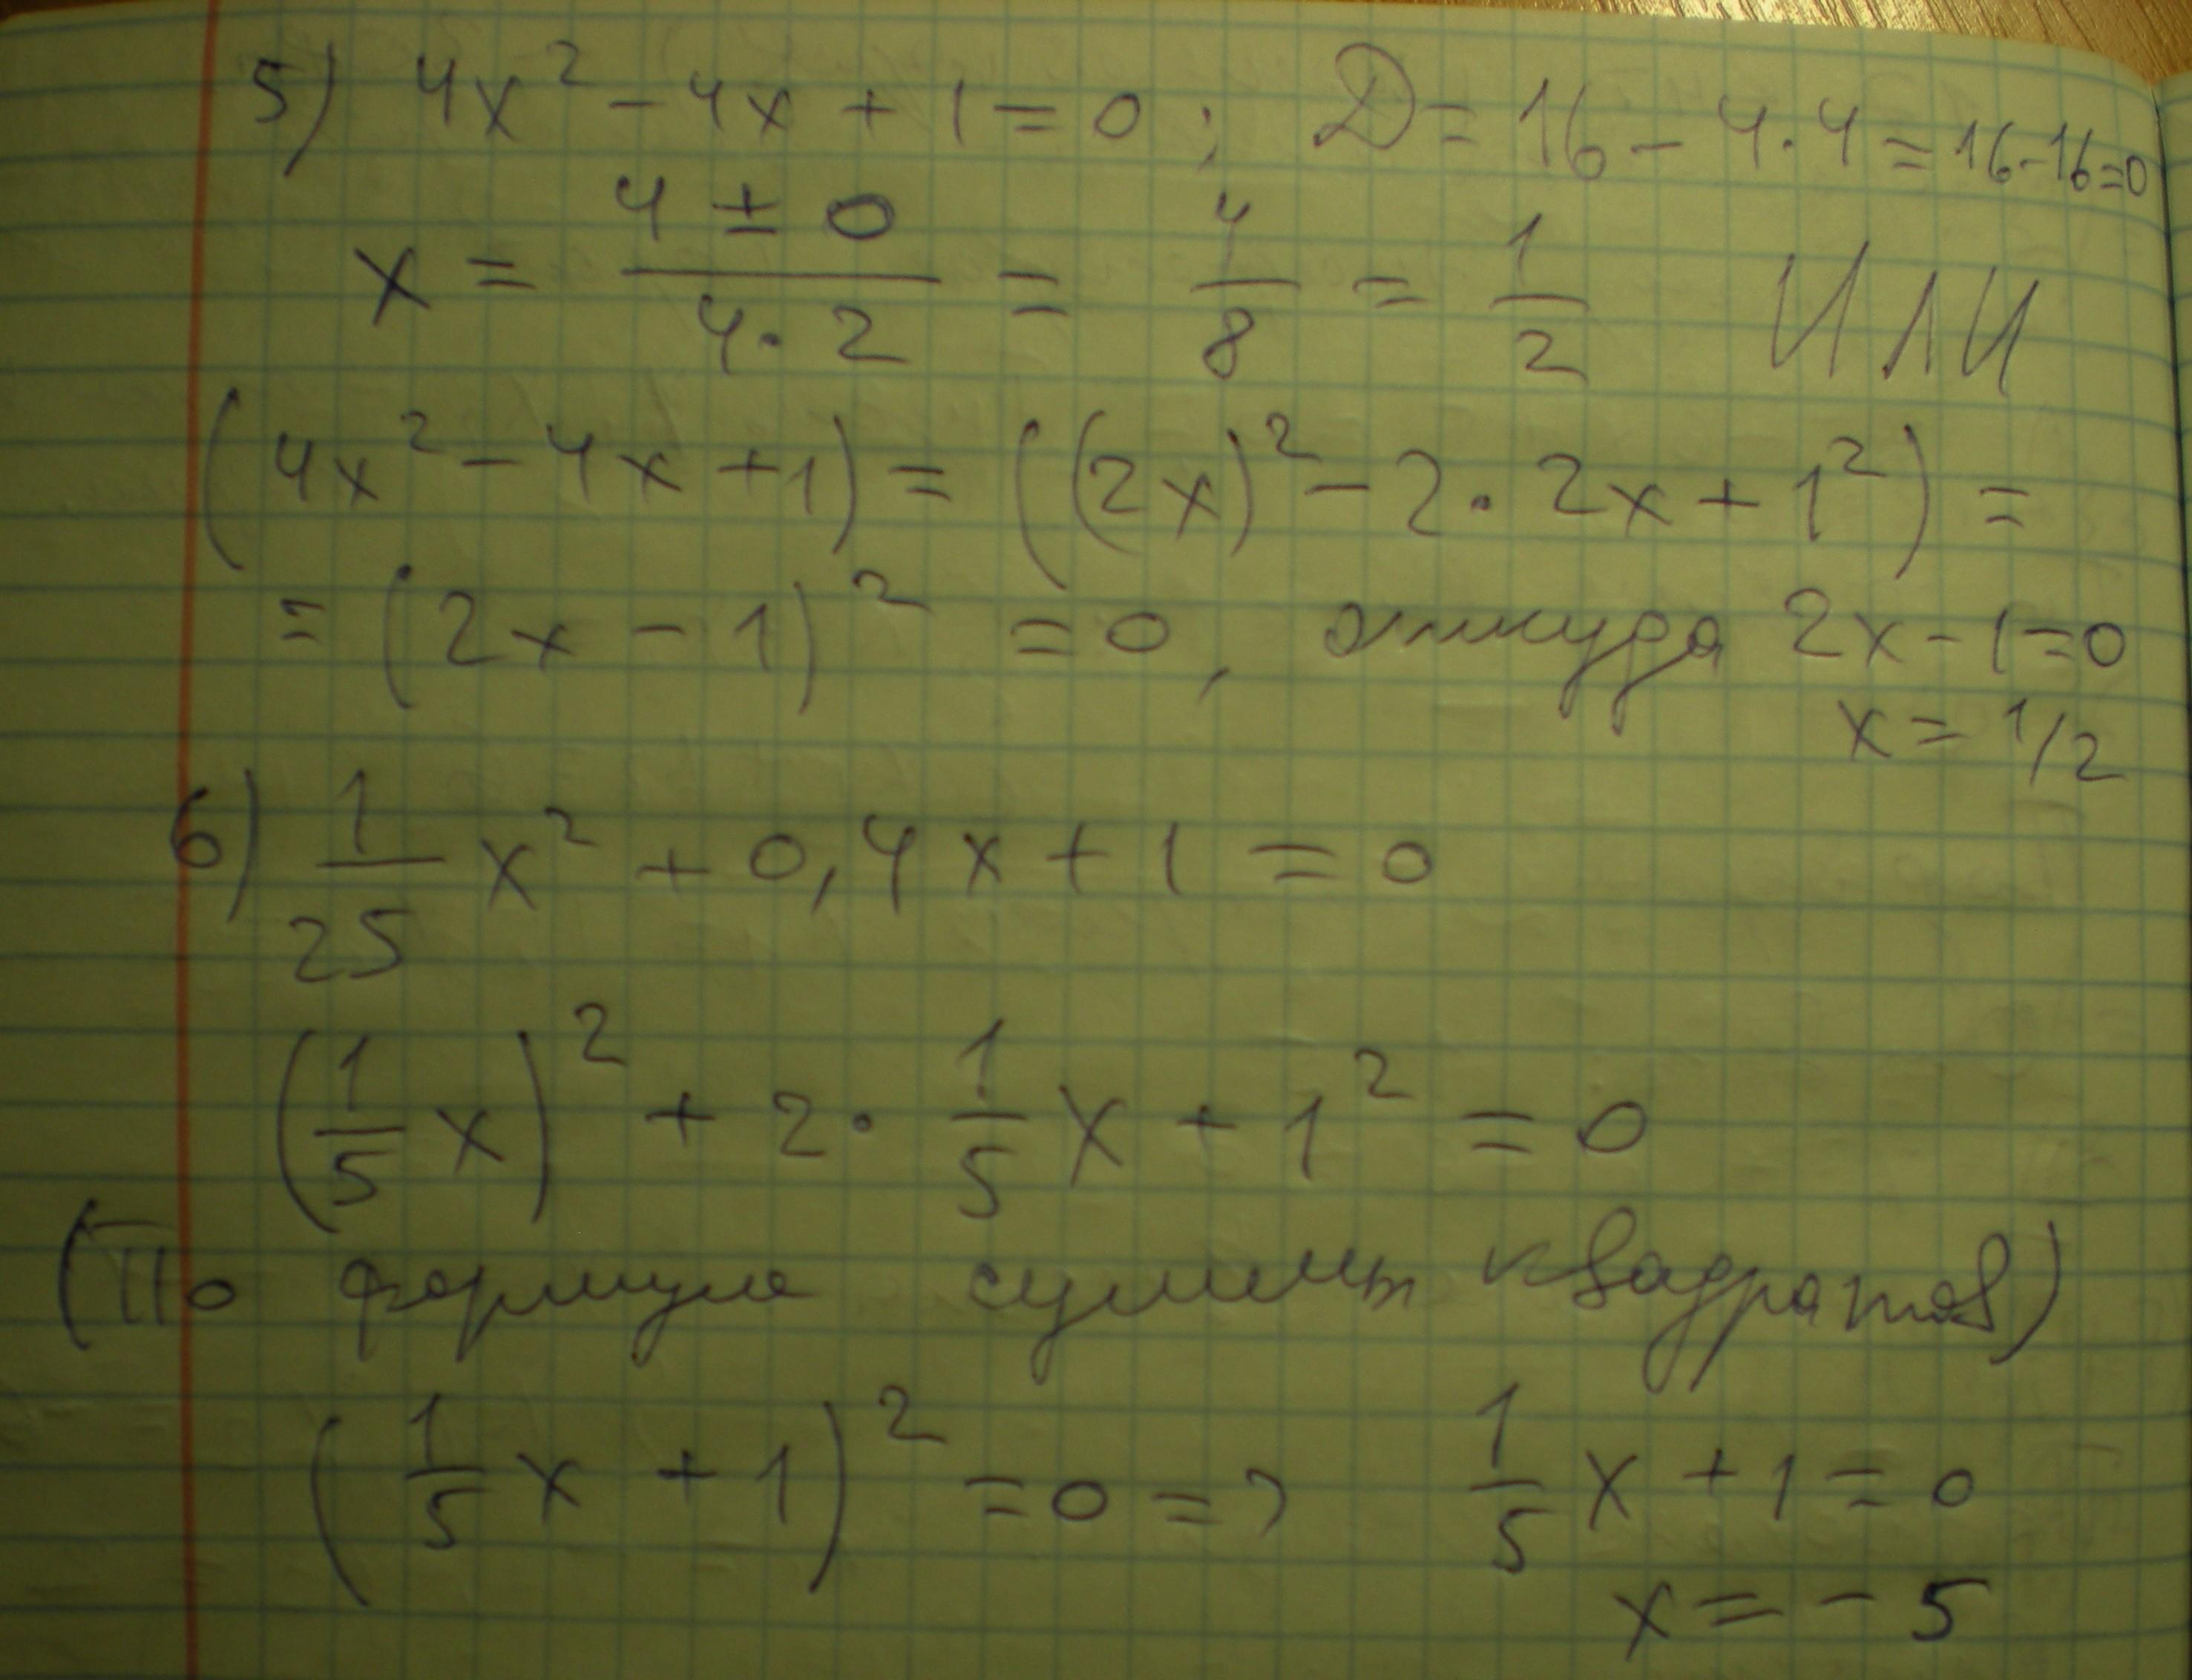 5) 4x² - 4x + 1 = 0 ; D = 16 - 4·4 = 16-16=0
x = (4 ± 0)/(4·2) = 4/8 = 1/2 ИЛИ
(4x² - 4x + 1) = ((2x)² - 2·2x + 1²) =
= (2x - 1)² = 0, откуда 2x - 1 = 0
x = 1/2
6) 1/25 x² + 0,4x + 1 = 0
(1/5 x)² + 2 · 1/5 x + 1² = 0
(По формуле суммы квадратов)
(1/5 x + 1)² = 0 => 1/5 x + 1 = 0
x = -5